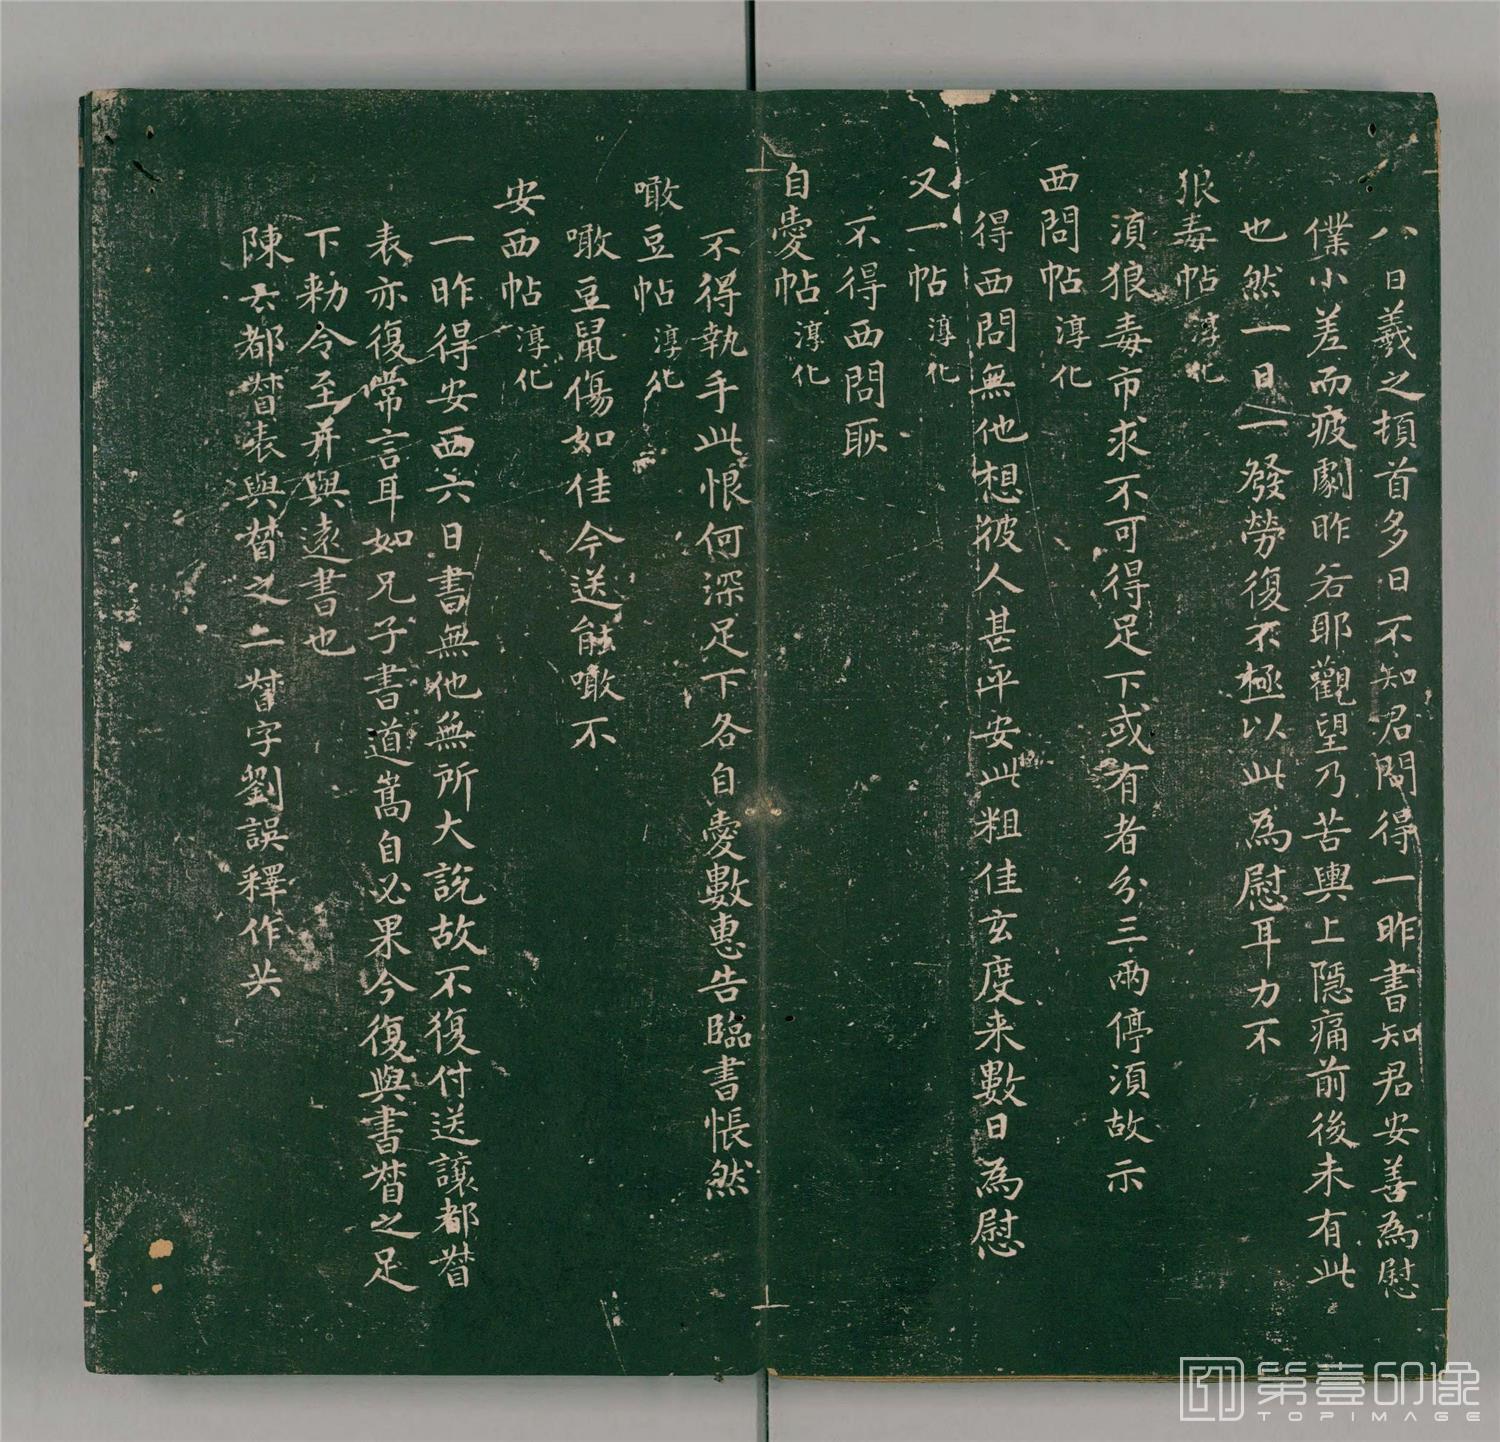 八日羲之頓首多日不知君問得一昨書知君安善為慰
僕小差而疲劇昨若耶觀望乃苦輿上隱痛前後未有此
也然一日一發勞復不極以此為慰耳力不
狼毒帖 淳化
湏狼毒市求不可得足下或有者分三兩停湏故示
西問帖 淳化
得西問無他想彼人甚平安此粗佳玄度来數日為慰
又一帖 淳化
不得西問耿
自愛帖 淳化
不得執手此恨何深足下各自愛數惠告臨書悵然
噉豆帖 淳化
噉豆鼠傷如佳今送能噉不
安西帖 淳化
一昨得安西六日書無他無所大說故不復付送讓都督
表亦復常言耳如兄子書道嵩自必果今復與書督之足
下勑令至并與遠書也
陳云都督表與督之二督字劉誤釋作共
第壹印像
TOPIMAGE